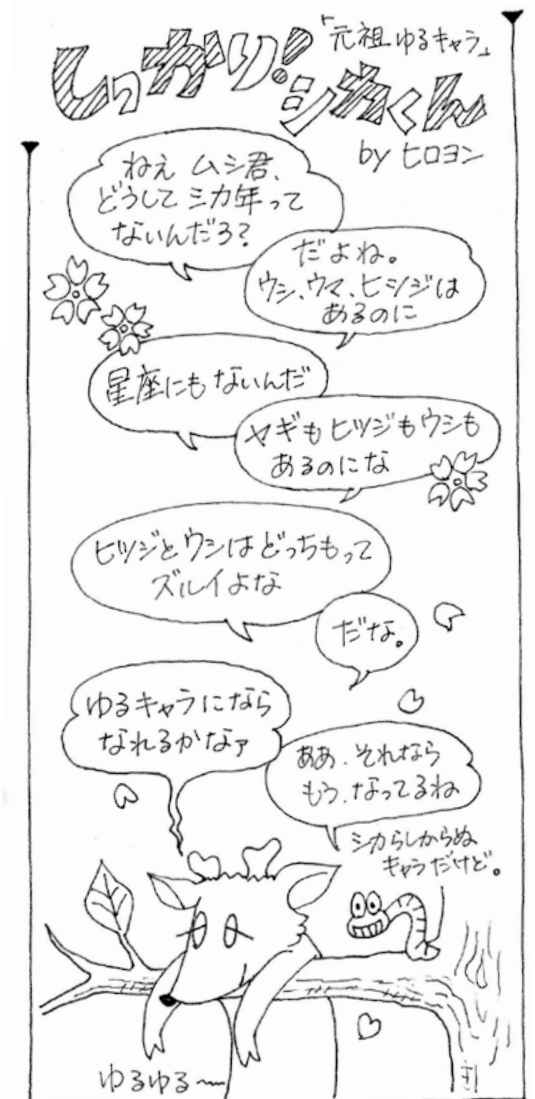 「元祖ゆるキャラ」
しっかり!
シカくん
by ヒロヨン
ねえ ムシ君、
どうして シカ年って
ないんだろ?
だよね。
ウシ、ウマ、ヒツジは
あるのに
星座にもないんだ
ヤギもヒツジもウシも
あるのにな
ヒツジとウシはどっちもって
ズルイよな
だな。
ゆるキャラになら
なれるかなァ
ああ、それなら
もう、なってるね
シカらしからぬ
キャラだけど。
ゆるゆる〜